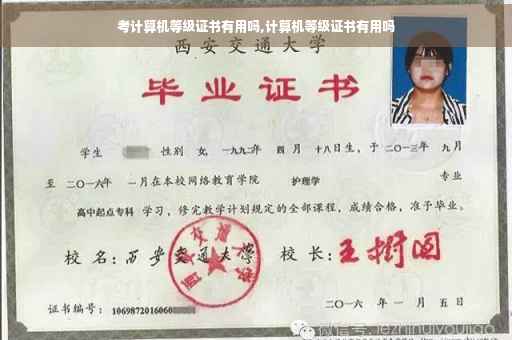 考计算机等级证书有用吗,计算机等级证书有用吗
西安交通大学
毕业证书
学生 性别 女, 一九九二年 四 月 十八日生, 于 二〇一三年 九月
至 二〇一六年 一月在本校网络教育学院 护理学 专业
高中起点专科 学习, 修完教学计划规定的全部课程, 成绩合格, 准予毕业。
校 名: 西安交通大学 校 长: 王树国
西安交通大学
证书编号: 1069872016060
二〇一六 年 一 月 五 日
微信号: lezhihuiyoujiao